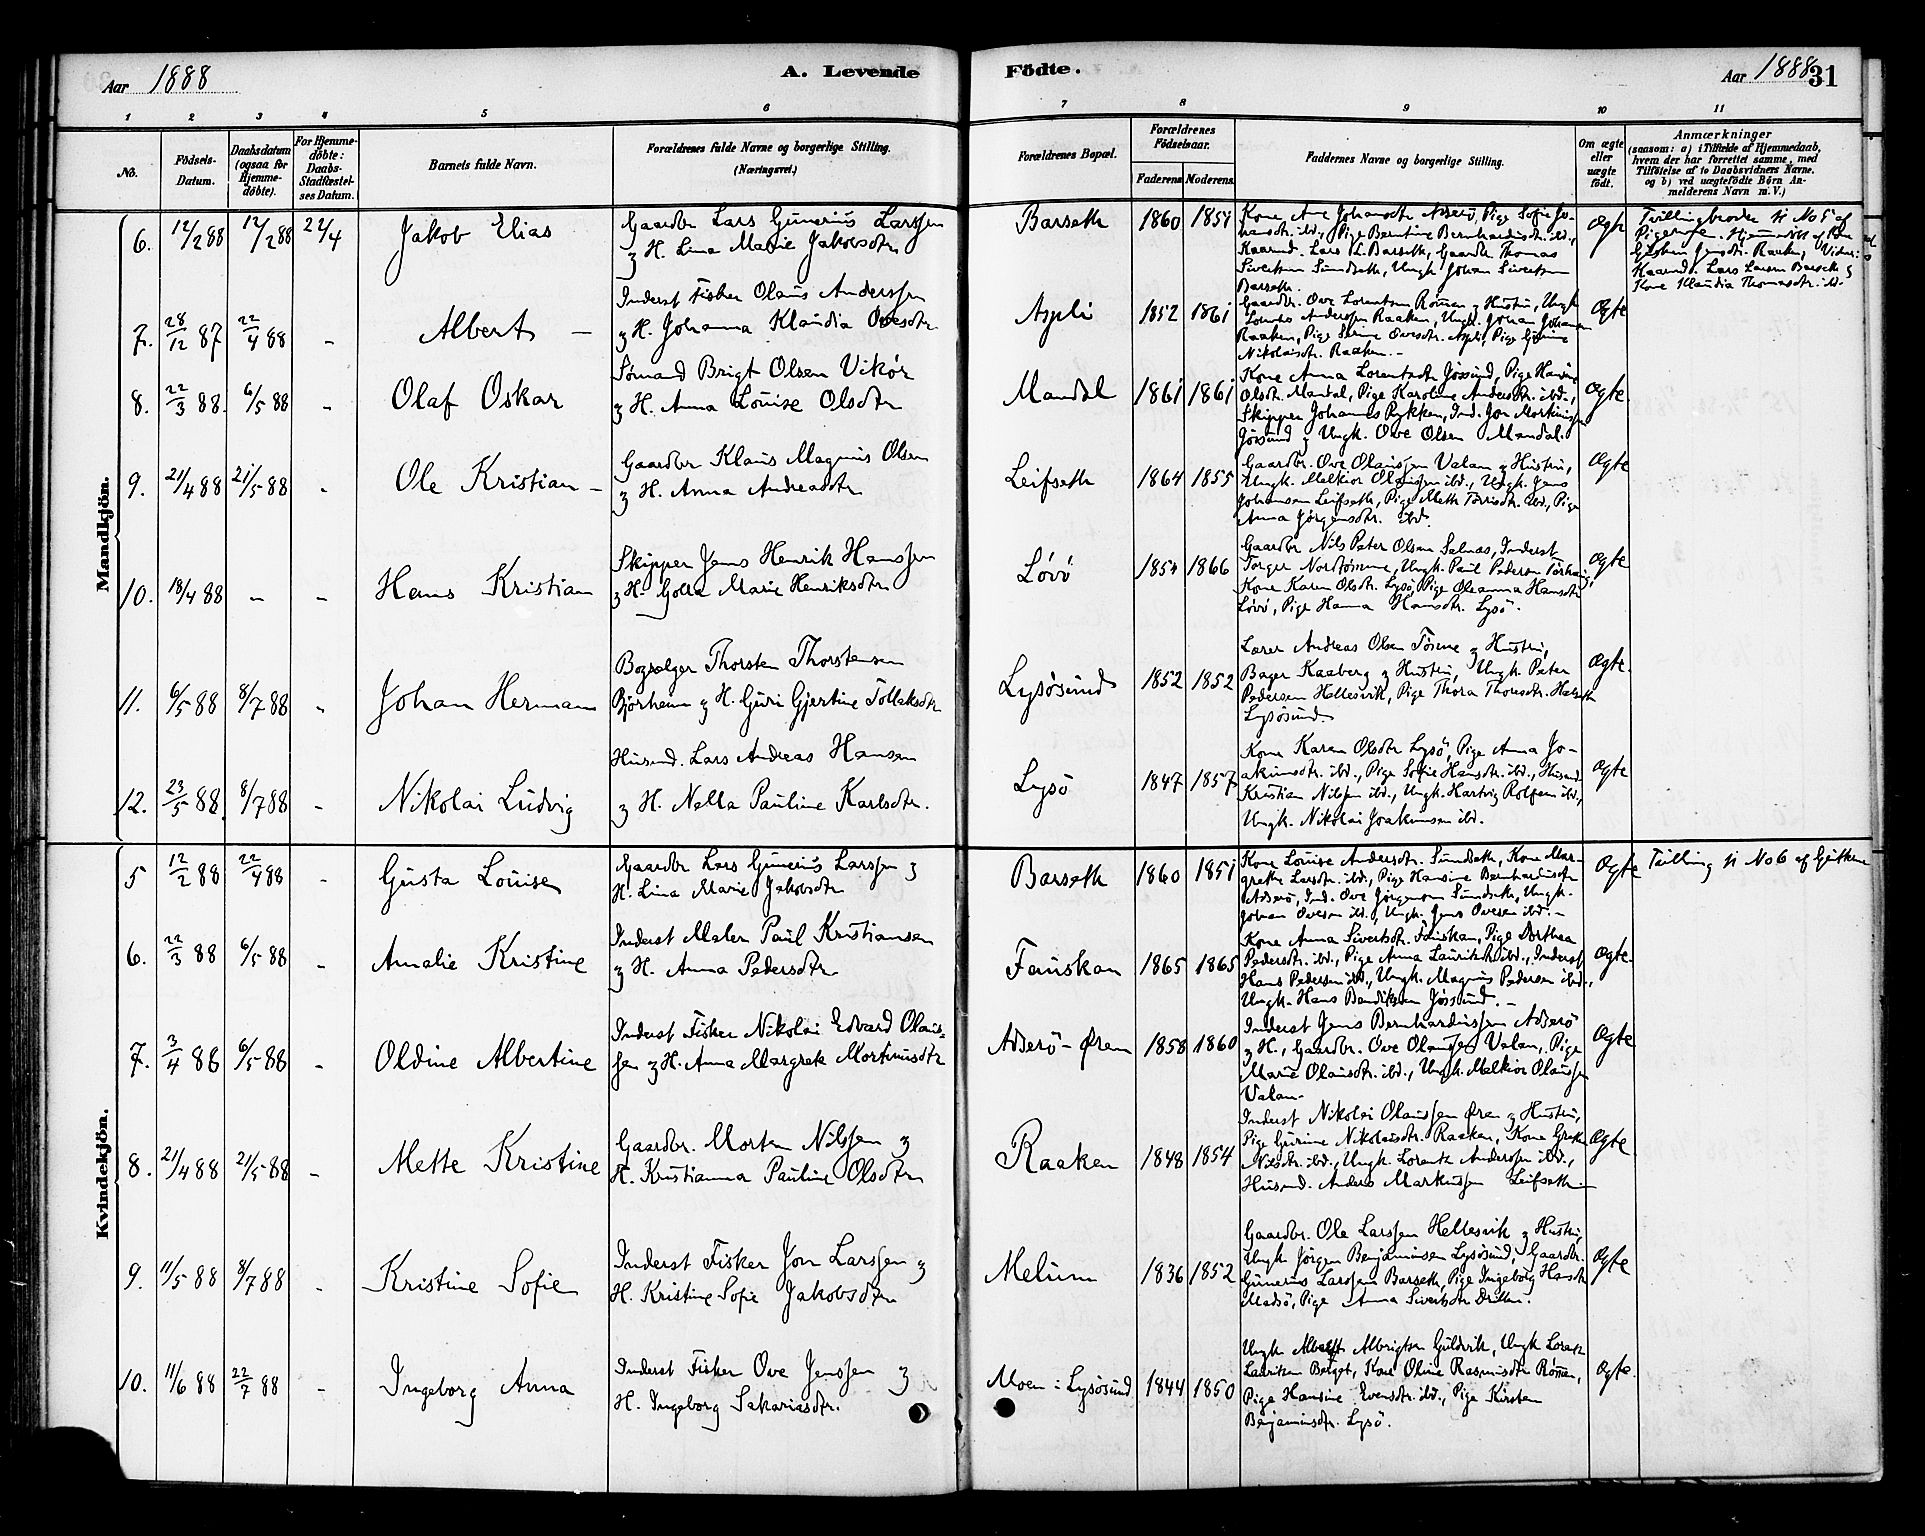 Aar 1888
A. Levende
Födte.
Aar 1888
31
1 2 3 4 5 6 7 8 9 10 11
No.
Födsels-Datum.
Daabsdatum (ogsaa for Hjemme-döbte).
For Hjemme-döbte: Daabs-Stadfæstel-ses Datum.
Barnets fulde Navn.
Forældrenes fulde Navne og borgerlige Stilling.
(Næringsvei.)
Forældrenes Bopæl.
Forældrenes Födselsaar.
Faderens Moderens
Faddernes Navne og borgerlige Stilling.
Om ægte eller uægte födt.
Anmærkninger
(saasom: a) i Tilfælde af Hjemmedaab, hvem der har forrettet samme, med Tilföielse af to Daabsvidners Navne. og b) ved uægtefödte Börn An-melderens Navn m. V.)
Mandkjön.
6. 12/2 88 12/2 88 22/4 Jakob Elias
Gaardbr Lars Gunerius Larssen
H. Lina Marie Jakobsdtr
Barseth 1860 1851
Kone Ane Johansdtr Adserö, Pige Sofie Jo-
hansdtr. ibd., Pige Berntine Bernhardusdtr. ibd.,
Kaarmd. Lars L. Barseth, Gaardbr Thomas
Sivertsen Sundseth, Ungk Johan Sivertsen
Barseth.
Ægte
Tvillingbroder til No 5 af
Pigerne. Hjemmedöbt af
Kaarmd. Lars Larsen Barseth &
Kone Klaudia Thomasdtr. ibd.
7. 28/12 87 22/4 88 - Albert -
Inderst Fisker Olaus Anderssen
& H. Johanna Klaudia Ovesdtr
Aspli 1852 1861
Gaardbr. Ove Lorentsen Römen & Hustru, Ungk
Lorents Andersen Raaken, Ungk. Johan Johansen
Raaken, Pige Stine Ovesdtr. Aspli, Pige Gurine
Nikolaisdtr. Raaken. -
Ægte
8. 22/3 88. 6/5 88 - Olaf Oskar
Sömand Brigt Olsen Vikör
& H. Anna Louise Olsdtr
Mandal 1861 1861
Kone Anna Lorentsdtr Jössund, Pige Hansine
Olsdtr. Mandal, Pige Karoline Andersdtr. ibd.,
Skipper Johannes Rykken, Ind. Jon Martinussen
Jössund & Ungk. Ove Olsen Mandal.
Ægte.
9. 21/4 88 21/5 88 - Ole Kristian -
Gaardbr Klaus Magnus Olsen
& H. Anna Andreasdtr
Leifseth 1864 1855
Gaardbr. Ove Olaussen Valan & Hustru,
Ungk. Melkior Olaussen ibd., Ungk. Jens
Johansen Leifseth, Pige Meth Torrisdtr. ibd., Pige
Anna Jörgensdtr. ibd.
Ægte
10. 18/4 88 - - Hans Kristian
Skipper Jens Henrik Hanssen
& H. Golla Marie Henriksdtr
Lövö 1854 1866
Gaardbr Nils Peter Olsen Selnæs, Inderst
Torger Nordtömme, Ungk. Paul Pedersen
Kone Karen Olsdtr. Lysö, Pige Oleanna Hansdtr
Lövö, Pige Hanna Hansdtr. Lysö.
Ægte
11. 6/5 88 8/7 88 - Johan Herman
Bogsælger Thorsten Thorstensen
Bjorheim & H. Guri Gjertine Tollaksdtr
Lysösund 1852 1852
Lærer Andreas Olsen Tömme & Hustru,
Bager Kaaberg & Hustru, Ungk Peter
Pedersen Hellesvik, Pige Thora Thoresdtr.
Lysösund
Ægte.
12. 23/5 88. 8/7 88 - Nikolai Ludvig
Husmd. Lars Andreas Hansen
& H. Nella Pauline Karlsdtr.
Lysö 1847 1857
Kone Karen Olsdtr Lysö, Pige Anna Jo-
akimsdtr. ibd., Pige Sofie Hansdtr. ibd., Husmd
Kristian Nilssen ibd., Ungk. Hartvig Rolfsen ibd.,
Ungk. Nikolai Joakimsen ibd.
Ægte
Kvindekjön.
5 12/2 88 22/4 88 - Gusta Louise
Gaardbr Lars Gunerius Larssen &
H. Lina Marie Jakobsdtr
Barseth 1860 1851
Kone Louise Andersdtr. Sundseth, Kone Mar-
grethe Larsdtr. ibd., Pige Hansine Bernhardusdtr
Adserö, Ind. Ove Jörgensen Sundseth, Ungk.
Johan Ovesen ibd., Ungk. Jens Ovesen ibd. -
Ægte
Tvilling til No 6 af Gutterne
6. 22/3 88 6/5 88 - Amalie Kristine
Inderst Maler Paul Kristiansen
& H. Anna Pedersdtr
Fauskan 1865 1865
Kone Anna Sivertsdtr. Fauskan, Pige Dorthea
Pedersdtr. ibd., Pige Anna Lauritsdtr ibd., Inderst
Hans Pedersen ibd., Ungk. Magnus Pedersen ibd.,
Ungk. Hans Bendiksen Jössund. -
Ægte.
7. 3/4 88 6/5 88 - Oldine Albertine
Inderst Fisker Nikolai Edvard Olaus-
sen & H. Anna Margrete Mortinusdtr
Adserö-Ören 1858 1860
Inderst Jens Bernhardussen Adserö
& H., Gaardbr. Ove Olaussen Valan, Pige
Marie Olausdtr. ibd., Ungk. Melkior Olaussen
Valan.
Ægte
8. 21/4 88 21/5 88 - Mette Kristine
Gaardbr. Morten Nilssen &
H. Kristianna Pauline Olsdtr
Raaken 1848 1854
Inderst Nikolai Olaussen Ören & Hustru,
Pige Gurine Nikolaisdtr. Raaken, Kone Grete
Nilsdtr. ibd., Ungk. Lorents Anderssen ibd.,
Husmd. Anders Markussen Leifseth
Ægte
9. 11/5 88 8/7 88 - Kristine Sofie
Inderst Fisker Jon Larssen &
H. Kristine Sofie Jakobsdtr
Melum 1836 1852
Gaardbr. Ole Larssen Hellesvik & Hustru,
Ungk Jörgen Benjaminsen Lysösund, Gaardbr.
Gunerius Larssen Barseth, Pige Ingeborg Hansdtr
Madsö, Pige Anna Sivertsdtr
Ægte
10. 11/6 88 22/7 88 - Ingeborg Anna
Inderst Fisker Ove Jenssen &
H. Ingeborg Sakariasdtr.
Moen i Lysösund 1844 1850
Ungk Albrigtsen Guldvik, Ungk Lorents
Lauritsen Kone Oline Rasmusdtr Römen,
Pige Hansine Evensdtr. ibd., Pige Kirsten
Benjaminsdtr. Lysö.
Ægte.